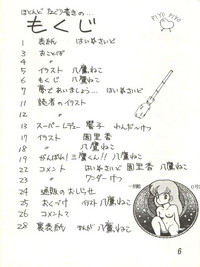 PIYO PIYO
もくじ
1 表紙 はいぬさいど
3 おことば
4 〃
5 イラスト 八鷹ねこ
6 もくじ 八鷹ねこ
7 夢であいましょう… はいぬさいど
11 読者のイラスト
12 〃
13 スーパーレディー 響子 わんだーけつ
17 イラスト 園里香
18 〃
19 がんばれ!三鷹くん!! 八鷹ねこ
22 コメント はいぬさいど 園里香 八鷹ねこ
23 〃 ワンダーけつ
24 通販のおしらせ
25 おくづけ イラスト 八鷹ねこ
26 コメント?
28 裏表紙 まんが 八鷹ねこ
6